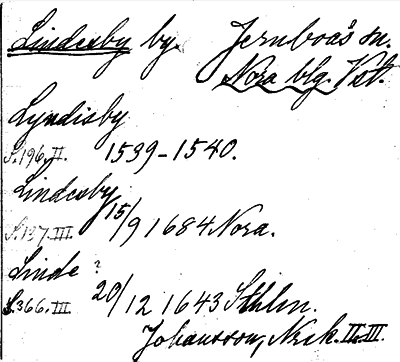 Lindesby by. Jernboås sn.
Nora blg. Vstl.
Lyndisby
S.196.II. 1539-1540.
Lindesby
S.137.III. 15/9 1684 Nora.
Linde ?
S.366.III. 20/12 1643 Sthlm.
Johansson, Nrk. II.III.